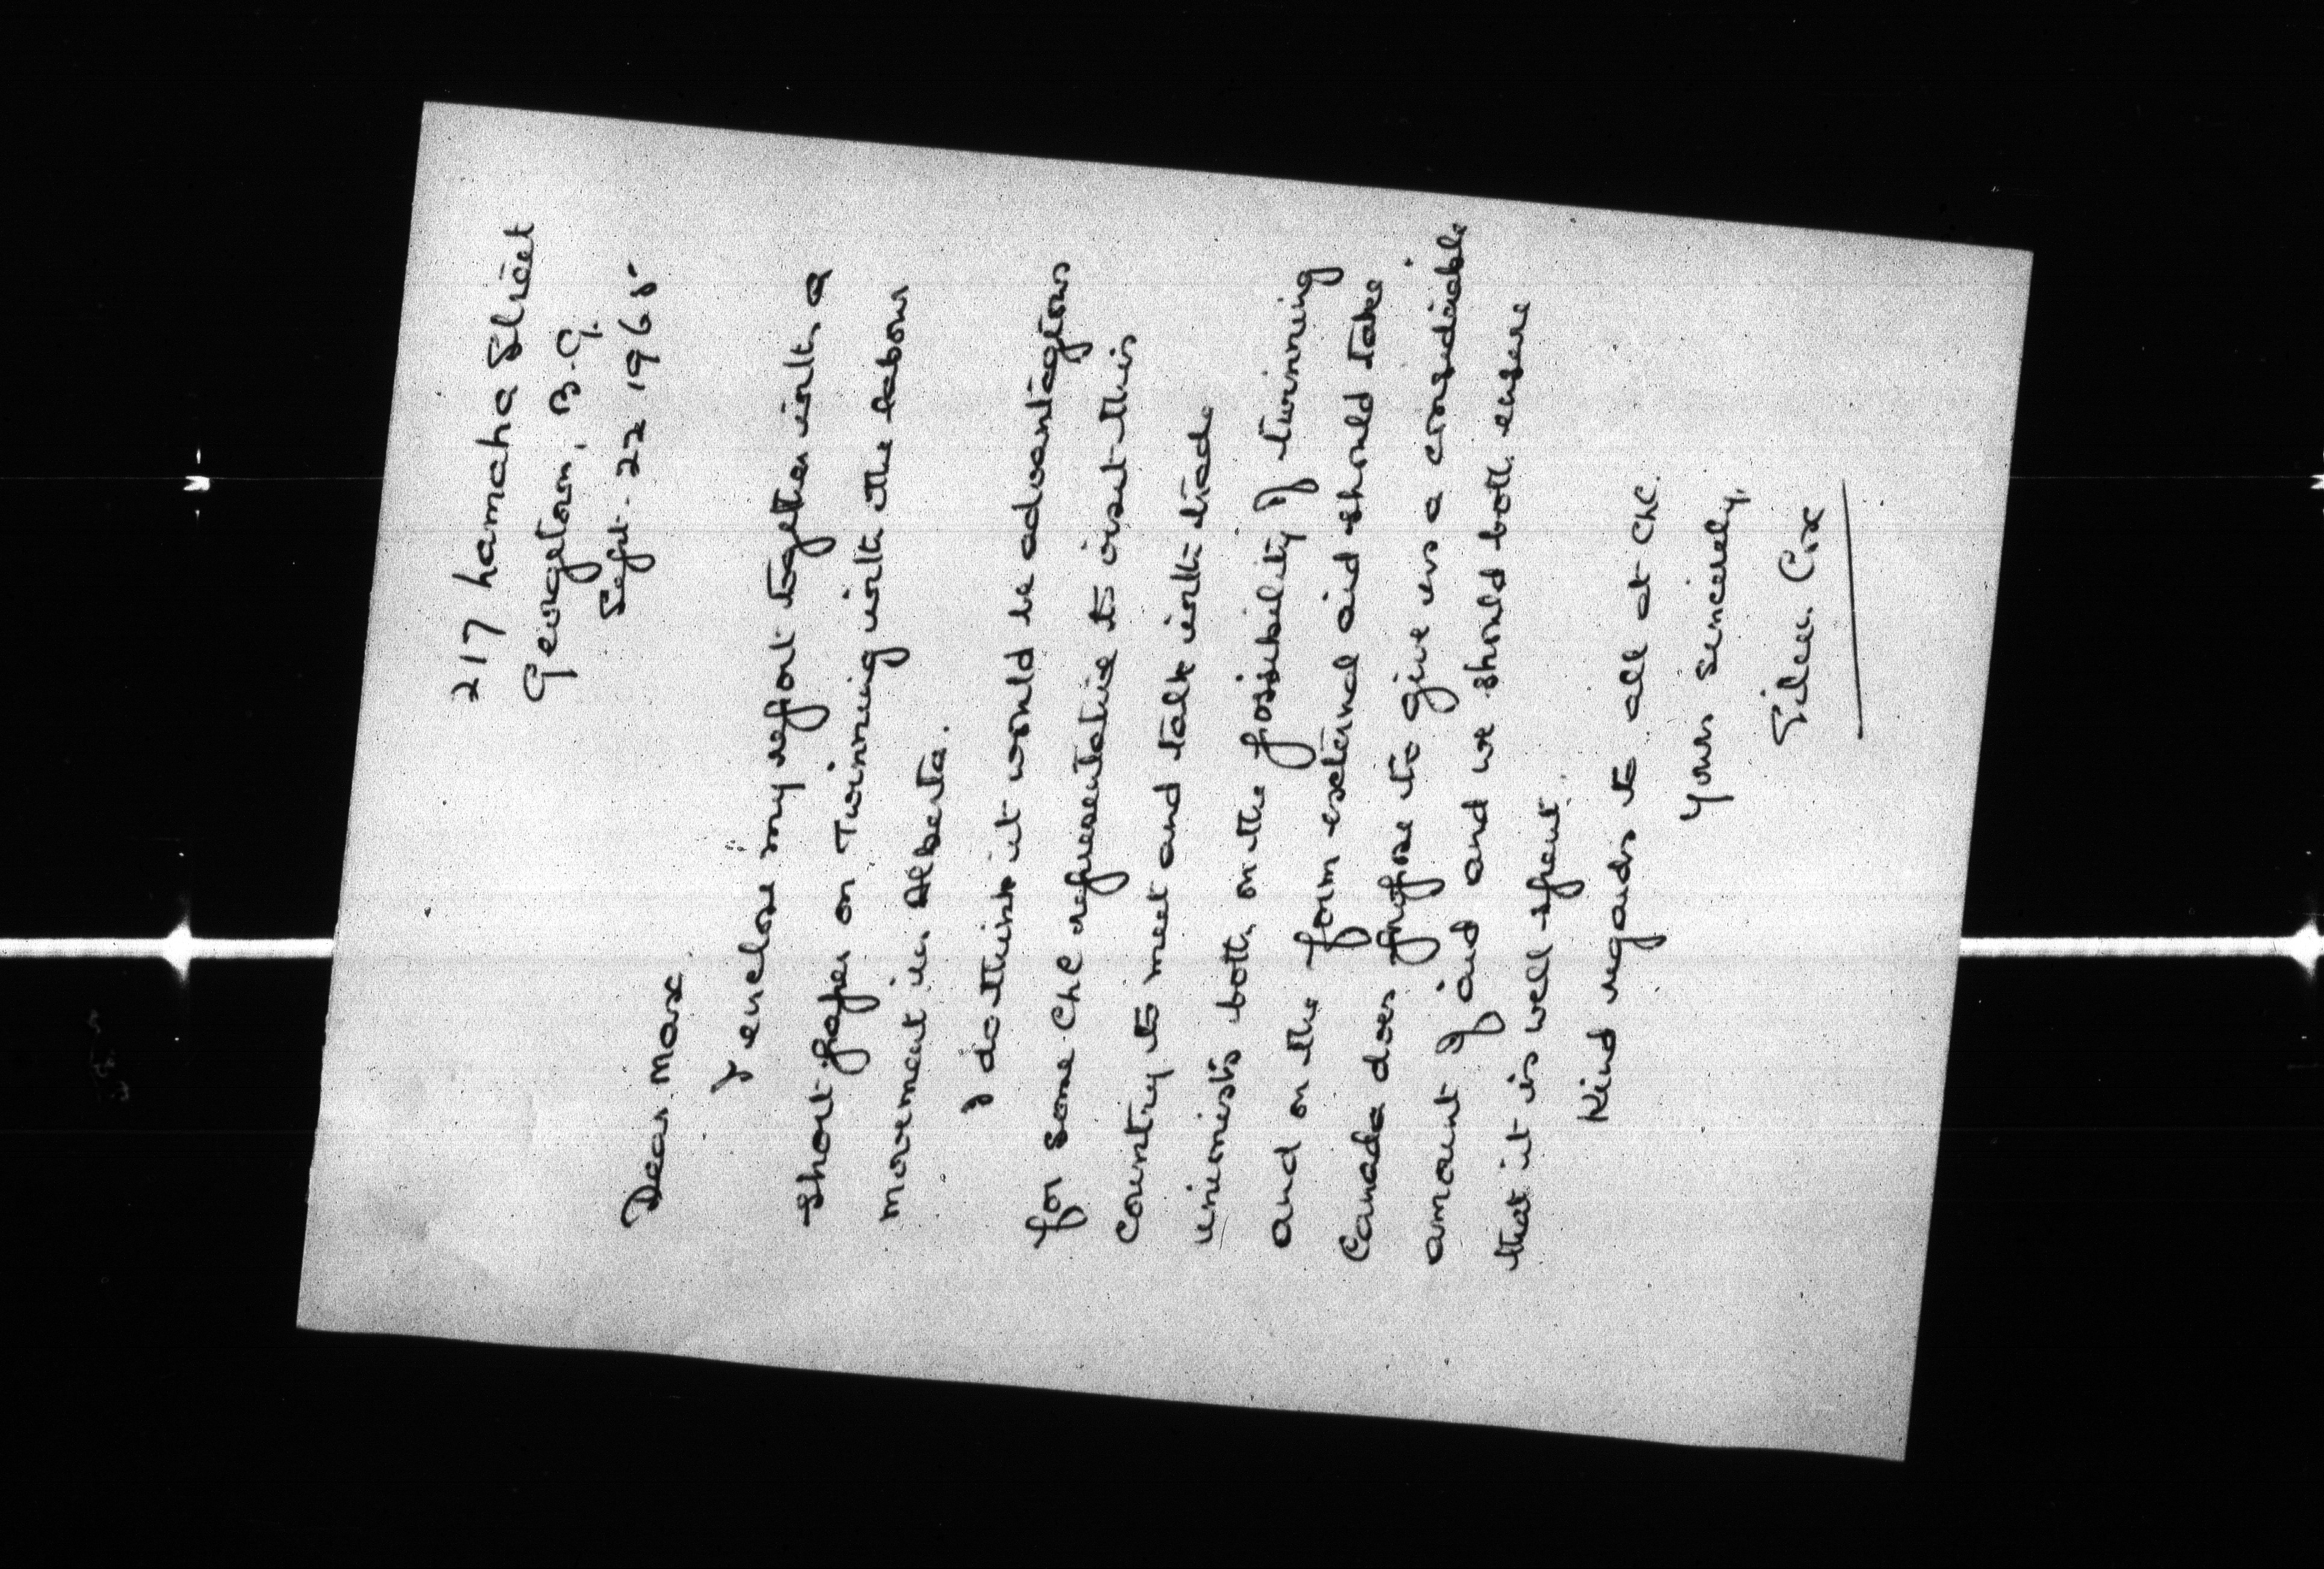 217 Lamaha Street
Georgetown, B.G.
Sept. 22 1965
Dear Max,
I enclose my report together with a
short paper on Twinning with the labour
movement in Alberta.
I do think it would be advantageous
for some CLC representative to visit this
country to meet and talk with trade
unionists both on the possibility of twinning
and on the form external aid should take.
Canada does propose to give us a considerable
amount of aid and we should both ensure
that it is well spent.
Kind regards to all at CLC.
Yours sincerely,
Eileen Cox